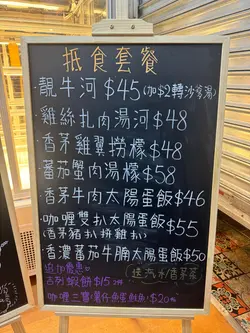 抵食套餐
·靚牛河$45(加$2轉沙嗲湯)
·雞絲扎肉湯河$48
·香茅雞翼撈檬$48
·蕃茄蟹肉湯檬$58
·香茅牛肉太陽蛋飯$46
·咖喱雙扒太陽蛋飯$55
(香茅豬扒拼雞扒)
·香濃蕃茄牛腩太陽蛋飯$50
追加優惠
(送熱水/香茅茶)
吉列蝦餅$15
咖喱三寶 $20